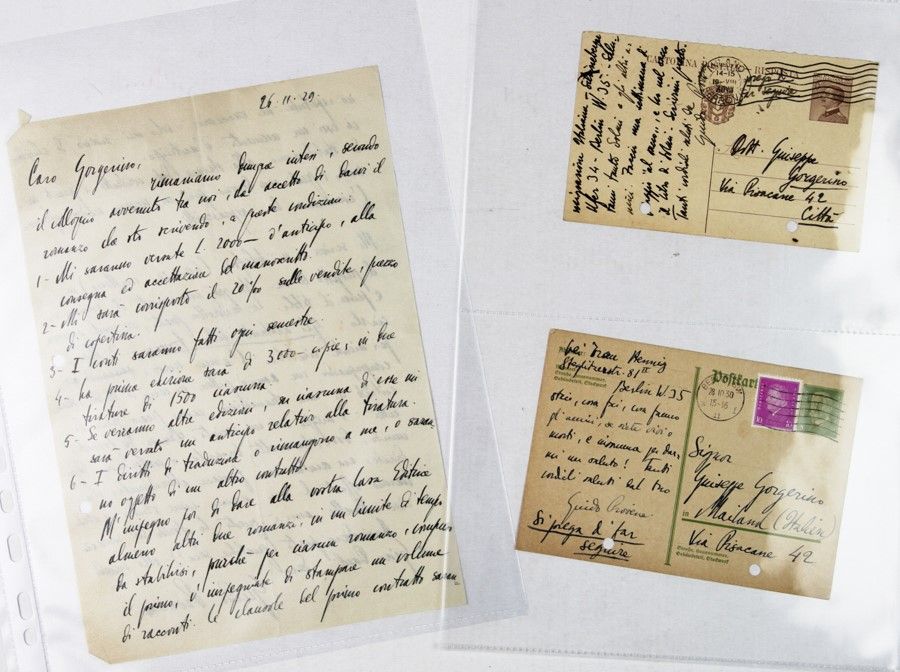 26.11.29.
Caro Gorgerino,
rimaniamo dunque intesi, secondo
il colloquio avvenuto tra noi, che accetto di darvi il
romanzo che sto scrivendo, a queste condizioni:
1- Mi saranno versate L. 2000- d'anticipo, alla
consegna ed accettazione del manoscritto.
2- Mi sarà corrisposto il 20% sulle vendite, prezzo
di copertina.
3- I conti saranno fatti ogni semestre.
4- La prima edizione sarà di 3000 copie, in due
tirature di 1500 ciascuna.
5- Se verranno altre edizioni, su ciascuna di esse mi
sarà versato un anticipo relativo alla tiratura.
6- I diritti di traduzione o rimangono a me, o saran
no oggetto di un altro contratto.
M'impegno poi di dare alla vostra Casa Editrice
almeno altri due romanzi, in un limite di tempo
da stabilirsi, purché per ciascun romanzo, compreso
il primo, v'impegniate di stampare un volume
di racconti. Le clausole del primo contratto saran
CARTOLINA
14-15
Ufer 34 - Berlin W. 35.
il libro di Solari. Scrivimi presto.
Tanti cordiali saluti da
Guido
prego di
far seguire
Dott. Giuseppe
Gorgerino
Via Pisacane 42
Città
bei Frau Hennig
Steglitzerstr. 81 III
Berlin W 35
Postkarte
28.10.30
15-16
gli amici, se siete vivi o
morti, e insomma per dar
mi un saluto! Tanti
cordiali saluti dal tuo
Guido Piovene
Si prega di far
seguire
Signor
Giuseppe Gorgerino
in Mailand (Italien)
Via Pisacane 42